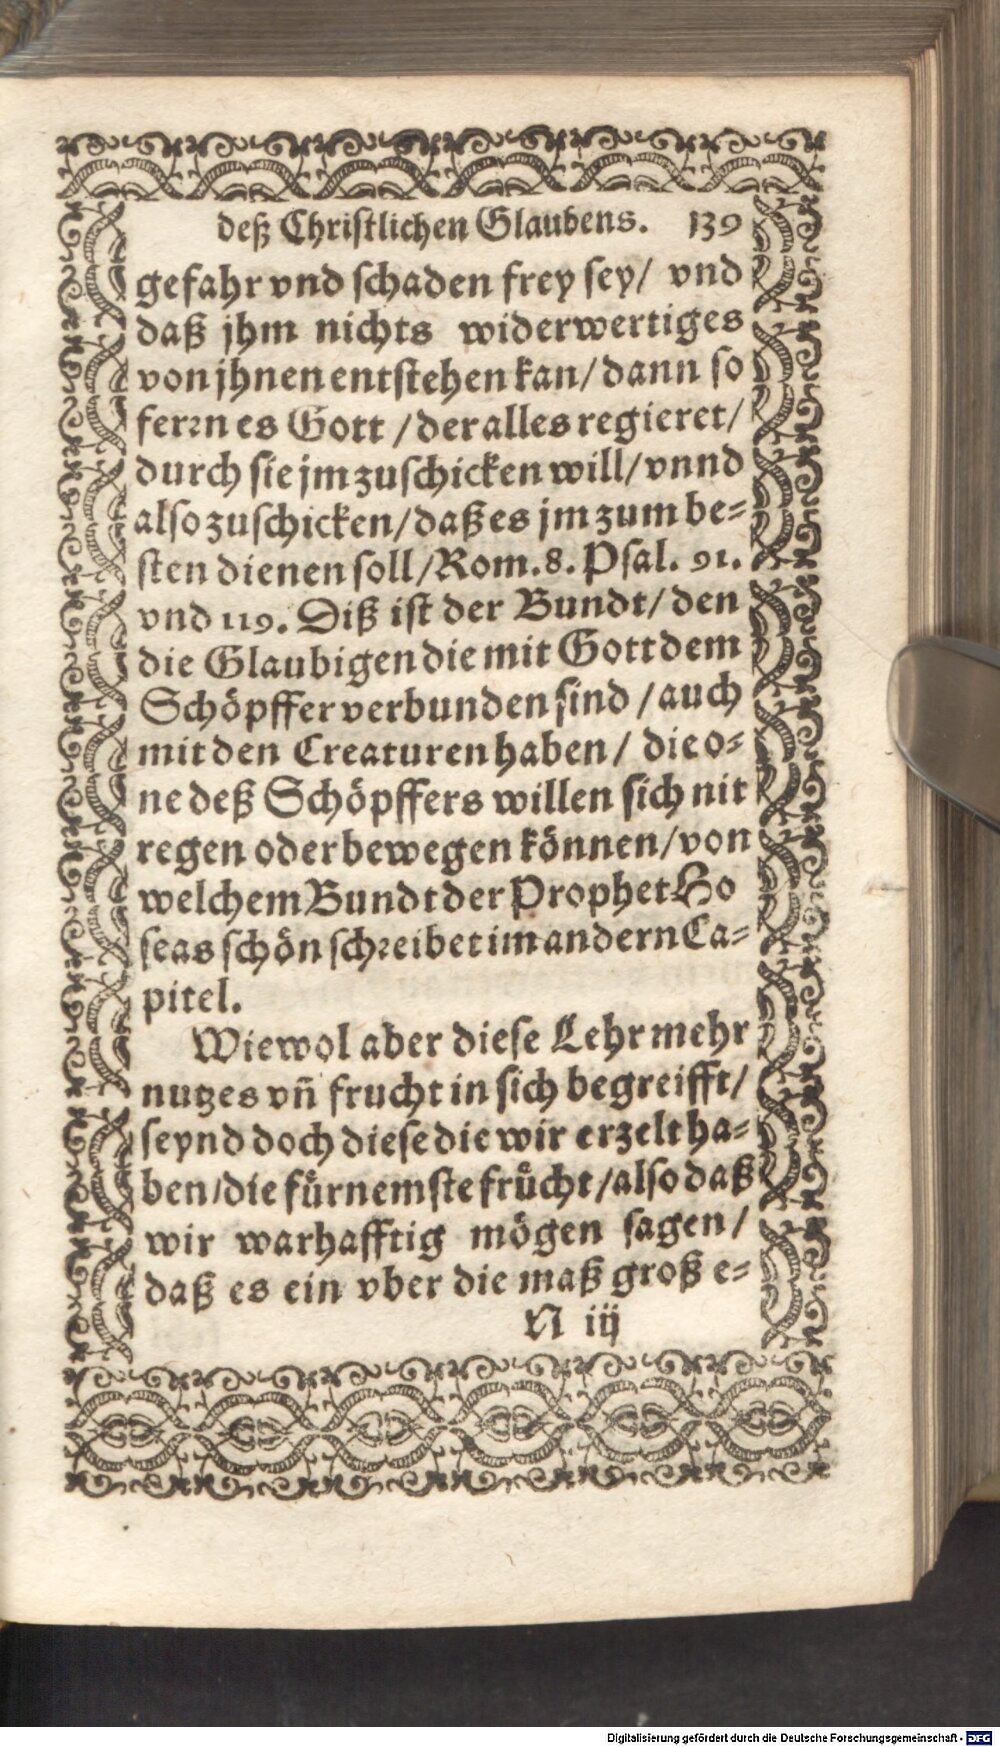 deß Christlichen Glaubens. 139
gefahr vnd schaden frey sey/ vnd
daß jhm nichts widerwertiges
von jhnen entstehen kan/ dann so
ferꝛn es Gott / der alles regieret/
durch sie jm zuschicken will/ vnnd
also zuschicken/ daß es jm zum be⸗
sten dienen soll/ Rom. 8. Psal. 91.
vnd 119. Diß ist der Bundt/ den
die Glaubigen die mit Gott dem
Schöpffer verbunden sind / auch
mit den Creaturen haben/ die o⸗
ne deß Schöpffers willen sich nit
regen oder bewegen können/ von
welchem Bundt der Prophet Ho
seas schön schꝛeibet im andern Ca⸗
pitel.
Wiewol aber diese Lehr mehr
nutzes vñ frucht in sich begreifft/
seynd doch diese die wir erzelt ha⸗
ben/ die fürnemste frücht/ also daß
wir warhafftig mögen sagen/
daß es ein vber die maß groß e⸗
N iij
Digitalisierung gefördert durch die Deutsche Forschungsgemeinschaft - DFG